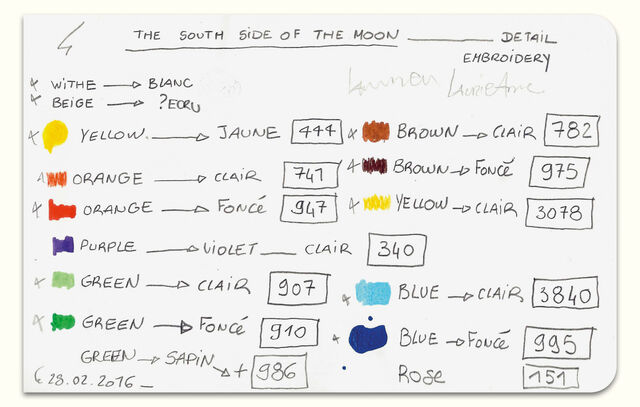 THE SOUTH SIDE OF THE MOON — DETAIL
EMBROIDERY
WITHE → BLANC
BEIGE → ?ECRU
YELLOW. → JAUNE 444
ORANGE → CLAIR 741
ORANGE → FONCÉ 947
PURPLE → VIOLET — CLAIR 340
GREEN → CLAIR 907
GREEN → FONCÉ 910
GREEN → SAPIN → + 986
28.02.2016 _
BROWN → CLAIR 782
BROWN → FONCÉ 975
YELLOW → CLAIR 3078
BLUE → CLAIR 3840
BLUE → FONCÉ 995
ROSE 151